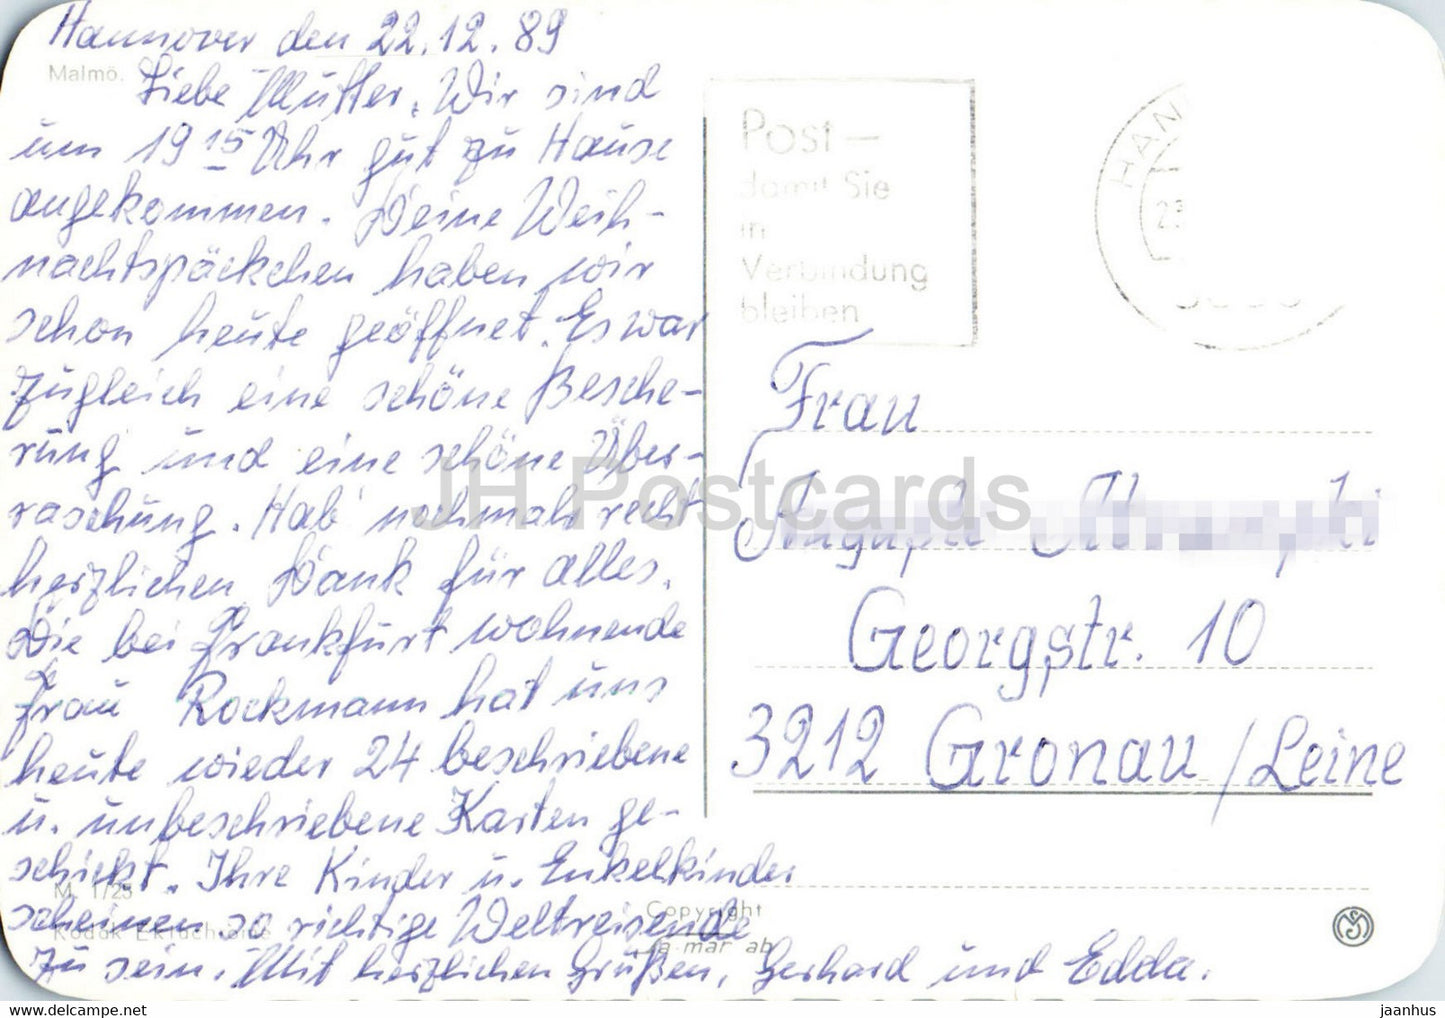 Hannover den 22.12.89
Malmö.
Liebe Mutter, Wir sind
um 19 15 Uhr gut zu Hause
angekommen. Deine Weih-
nachtspäckchen haben wir
schon heute geöffnet. Es war
zugleich eine schöne Besche-
rung und eine schöne Über-
raschung. Hab' nochmals recht
herzlichen Dank für alles.
Die bei Frankfurt wohnende
Frau Rockmann hat uns
heute wieder 24 beschriebene
u. unbeschriebene Karten ge-
schickt. Ihre Kinder u. Enkelkinder
scheinen so richtige Weltreisende
zu sein. Mit herzlichen Grüßen, Gerhard und Edda.
M. 1/25
Kodak Ektachrome
Post –
damit Sie
in
Verbindung
bleiben
HAN
23
Frau
Georgstr. 10
3212 Gronau / Leine
Copyright
a-mar ab
JH Postcards
www.hippostcard.com
jaanhus